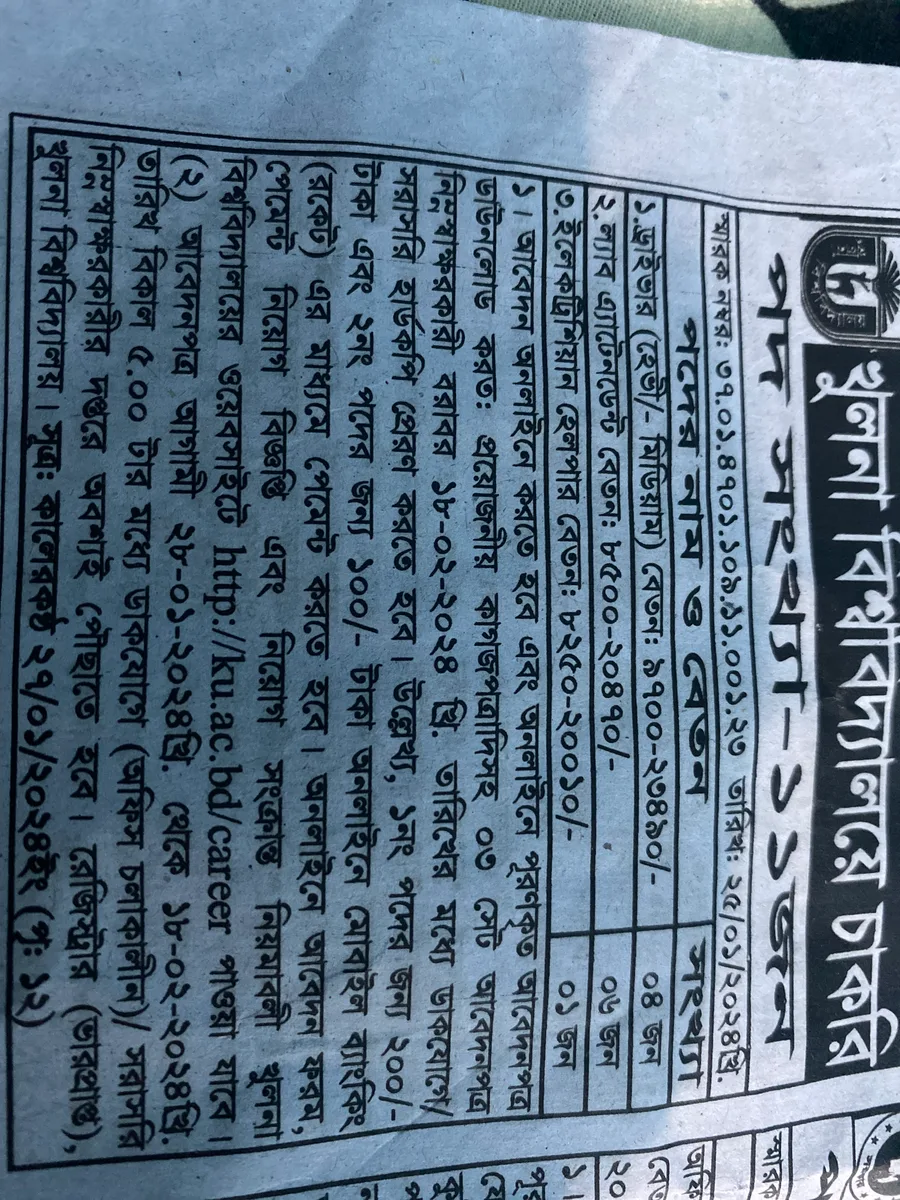 খুলনা বিশ্ববিদ্যালয়ে চাকরি
পদ সংখ্যা-১১জন
স্মারক নম্বর: ৩৭.০১.৪৭০১.১০৯.৪১.০০১.২৩ তারিখ: ২৫/০১/২০২৪খ্রি.
পদের নাম ও বেতন সংখ্যা
১.ড্রাইভার (হেভী/- মিডিয়াম) বেতন: ৯৭০০-২৩৪৯০/- ০৪ জন
২. ল্যাব এ্যাটেনডেন্ট বেতন: ৮৫০০-২০৪৭০/- ০৬ জন
৩. ইলেকট্রিশিয়ান হেলপার বেতন: ৮২৫০-২০০১০/- ০১ জন
১। আবেদন অনলাইনে করতে হবে এবং অনলাইনে পূরণকৃত আবেদনপত্র
ডাউনলোড করত: প্রয়োজনীয় কাগজপত্রাদিসহ ০৩ সেট আবেদনপত্র
নিম্নস্বাক্ষরকারী বরাবর ১৮-০২-২০২৪ খ্রি. তারিখের মধ্যে ডাকযোগে/
সরাসরি হার্ডকপি প্রেরণ করতে হবে। উল্লেখ্য, ১নং পদের জন্য ২০০/-
টাকা এবং ২নং পদের জন্য ১০০/- টাকা অনলাইনে মোবাইল ব্যাংকিং
(রকেট) এর মাধ্যমে পেমেন্ট করতে হবে। অনলাইনে আবেদন ফরম,
পেমেন্ট নিয়োগ বিজ্ঞপ্তি এবং নিয়োগ সংক্রান্ত নিয়মাবলী খুলনা
বিশ্ববিদ্যালয়ের ওয়েবসাইটে http://ku.ac.bd/career পাওয়া যাবে।
(২) আবেদনপত্র আগামী ২৮-০১-২০২৪খ্রি. থেকে ১৮-০২-২০২৪খ্রি.
তারিখ বিকাল ৫.০০ টার মধ্যে ডাকযোগে (অফিস চলাকালীন)/ সরাসরি
নিম্নস্বাক্ষরকারীর দপ্তরে অবশ্যই পৌছাতে হবে। রেজিস্ট্রার (ভারপ্রাপ্ত),
খুলনা বিশ্ববিদ্যালয়। সূত্র: কালেরকণ্ঠ ২৭/০১/২০২৪ইং (পৃ: ১২)
স্মারক